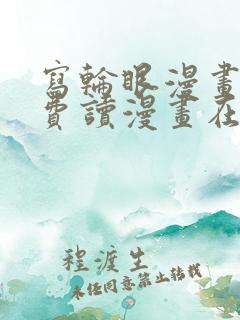 寫輪眼漫畫
費讀漫畫在
程渡生
未经同意禁止转载